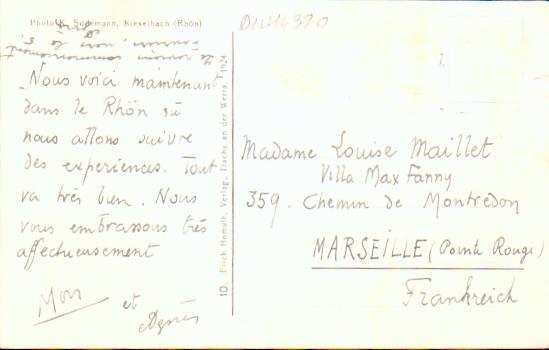 Photo K. Sodemann, Kieselbach (Rhön)
DIL14390
Nous voici maintenant
dans le Rhön où
nous allons suivre
des experiences. Tout
va très bien. Nous
vous embrassons très
affectueusement
et
Agnès
10. Erich Homuth, Verlag, Vacha an der Werra. 1924
Madame Louise Maillet
Villa Max Fanny
359. Chemin de Montredon
MARSEILLE (Pointe Rouge)
Frankreich